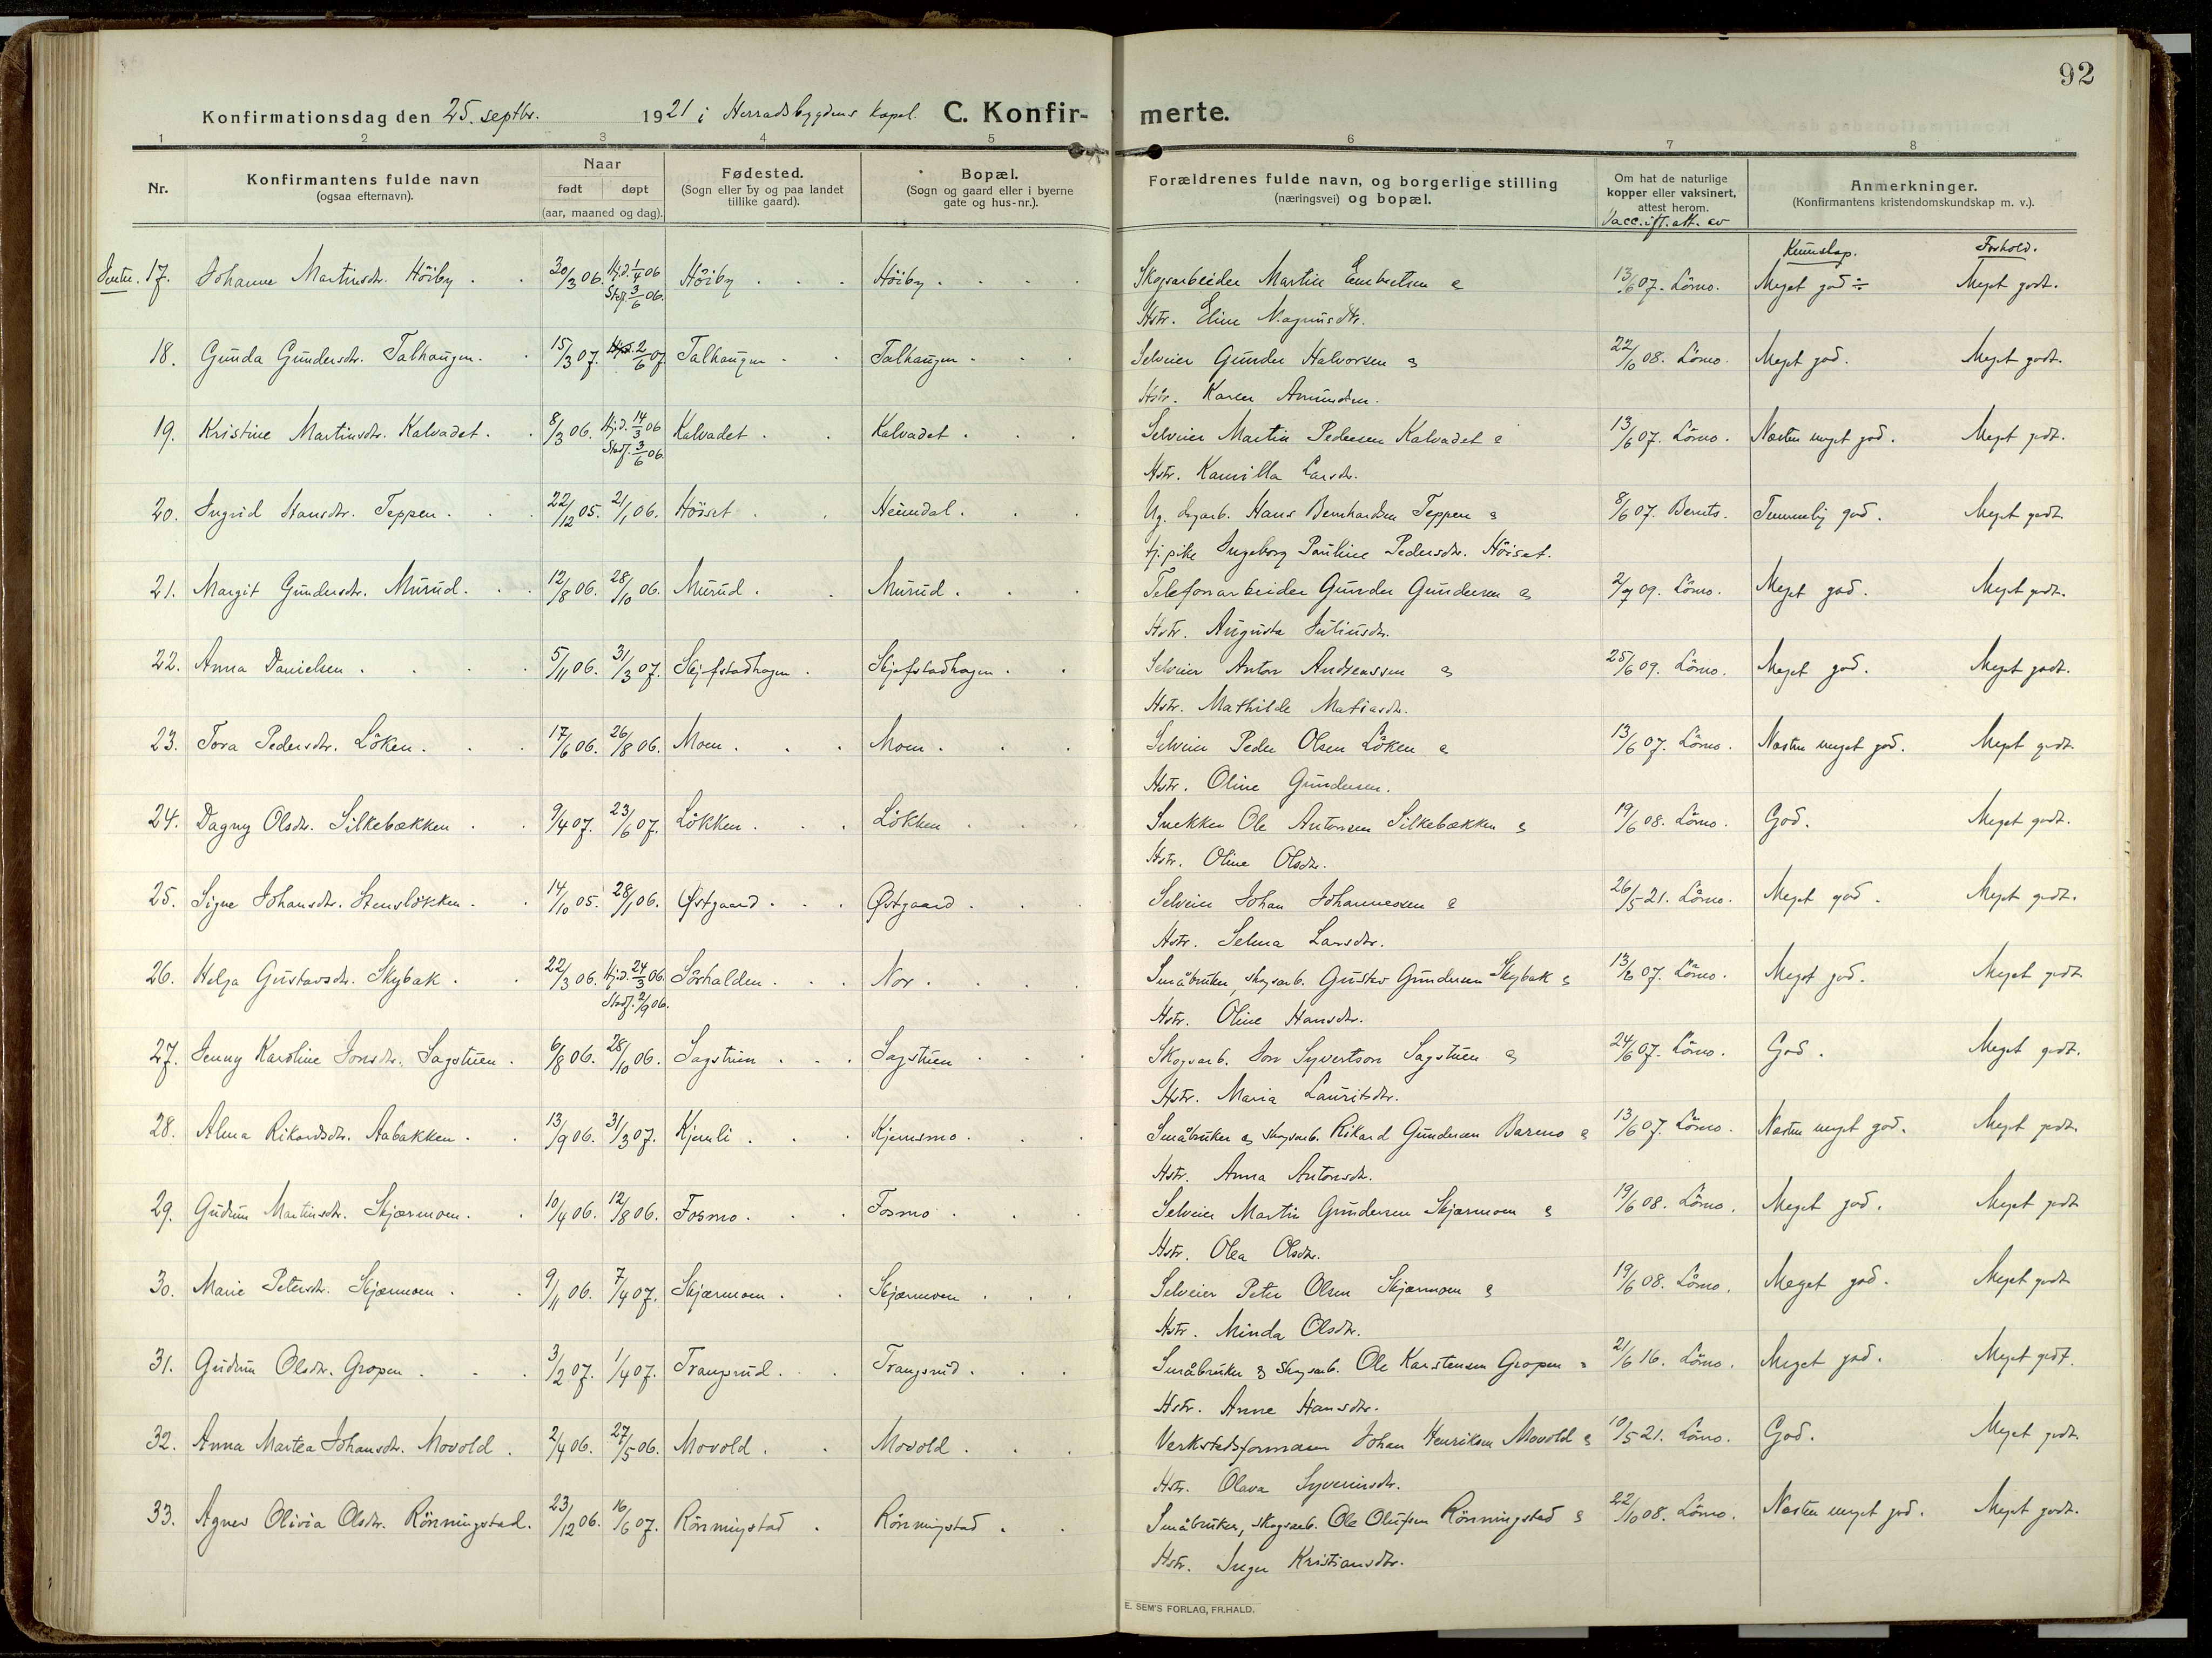 92
Konfirmationsdag den 25. septbr. 1921 i Herradsbygdens kapel. C. Konfir- merte.
1 2 3 4 5 6 7 8
Nr. Konfirmantens fulde navn (ogsaa efternavn). Naar født døpt (aar, maaned og dag). Fødested. (Sogn eller by og paa landet tillike gaard). Bopæl. (Sogn og gaard eller i byerne gate og hus-nr.). Forældrenes fulde navn, og borgerlige stilling (næringsvei) og bopæl. Om hat de naturlige kopper eller vaksinert, attest herom. Vacc. ifl. att. av Anmerkninger. (Konfirmantens kristendomskundskap m. v.).
Kunnskap. Forhold.
Jenter. 17. Johanne Martinsdtr. Höiby. 30/3 06. Hj.d. 1/4 06 Höiby. Höiby. Skogsarbeider Martin Embretsen & 13/6 07. Lömo. Meget god ÷ Meget godt.
Stadf. 3/6 06. Hstr. Eline Magnusdtr.
18. Gunda Gundersdtr. Talhaugen. 15/3 07. 2/6 07 Talhaugen. Talhaugen. Selveier Gunder Halvorsen & 22/10 08. Lömo. Meget god. Meget godt.
Hstr. Karen Amundsen.
19. Kristine Martinsdtr. Kalvadet. 8/3 06. Hj.d. 14/3 06 Kalvadet. Kalvadet. Selveier Martin Pedersen Kalvadet & 13/6 07. Lömo. Næsten meget god. Meget godt.
Stadf. 3/6 06. Hstr. Kamilla Larsdtr.
20. Ingrid Hansdtr. Teppen. 22/12 05. 2/1 06. Höiset. Heimdal. Ug. dagarb. Hans Bernhardsen Teppen & 8/6 07. Bernts. Temmelig god. Meget godt.
tj. pike Ingeborg Pauline Pedersdtr. Höiset.
21. Margit Gundersdtr. Murud. 12/8 06. 28/10 06. Murud. Murud. Telefonarbeider Gunder Gundersen & 2/7 09. Lömo. Meget god. Meget godt.
Hstr. Augusta Juliusdtr.
22. Anna Danielsen. 5/11 06. 31/3 07. Skjefstadhagen. Skjefstadhagen. Selveier Anton Andreassen & 25/6 09. Lömo. Meget god. Meget godt.
Hstr. Mathilde Matiasdtr.
23. Tora Pedersdtr. Löken. 17/6 06. 26/8 06. Moen. Moen. Selveier Peder Olsen Löken & 13/6 07. Lömo. Næsten meget god. Meget godt.
Hstr. Oline Gundersen.
24. Dagny Olsdtr. Silkebækken. 9/4 07. 23/6 07. Lökken. Lökken. Snekker Ole Antonsen Silkebækken & 19/6 08. Lömo. God. Meget godt.
Hstr. Oline Olsdtr.
25. Signe Johansdtr. Stenslökken. 14/10 05. 28/1 06. Østgaard. Østgaard. Selveier Johan Johannessen & 26/5 21. Lömo. Meget god. Meget godt.
Hstr. Selma Larsdtr.
26. Helga Gustavsdtr. Skybak. 22/3 06. Hj.d. 24/3 06. Sörhalden. Nor. Småbruker, skogsarb. Gustav Gundersen Skybak & 13/6 07. Lömo. Meget god. Meget godt
Stadf. 2/9 06. Hstr. Oline Hansdtr.
27. Jenny Karoline Jonsdtr. Sagstuen. 6/8 06. 28/10 06. Sagstuen. Sagstuen. Skogsarb. Jon Syvertson Sagstuen & 24/6 07. Lömo. God. Meget godt.
Hstr. Maria Lauritsdtr.
28. Alma Rikardsdtr. Aabakken. 13/9 06. 31/3 07. Kjernli. Kjernsmo. Småbruker & skogsarb. Rikard Gundersen Barmo & 13/6 07. Lömo. Næsten meget god. Meget godt.
Hstr. Anna Antonsdtr.
29. Gudrun Martinsdtr. Skjærmoen. 10/4 06. 12/8 06. Fosmo. Fosmo. Selveier Martin Gundersen Skjærmoen & 19/6 08. Lömo. Meget god. Meget godt
Hstr. Olea Olsdtr.
30. Marie Petersdtr. Skjærmoen. 9/11 06. 7/4 07. Skjærmoen. Skjærmoen. Selveier Peter Olsen Skjærmoen & 19/6 08. Lömo. Meget god. Meget godt
Hstr. Minda Olsdtr.
31. Gudrun Olsdtr. Gropen. 3/2 07. 1/4 07. Trangsrud. Trangsrud. Småbruker & skogsarb. Ole Karstensen Gropen & 21/6 16. Lömo. Meget god. Meget godt.
Hstr. Anne Hansdtr.
32. Anna Martea Johansdtr. Movold. 2/4 06. 27/5 06. Movold. Movold. Verkstedsformann Johan Henriksen Movold & 10/5 21. Lömo. God. Meget godt.
Hstr. Olava Syverinsdtr.
33. Agnes Olivia Olsdtr. Rönningstad. 23/12 06. 16/6 07. Rönningstad. Rönningstad. Småbruker, skogsarb. Ole Olufsen Rönningstad & 22/10 08. Lömo. Næsten meget god. Meget godt.
Hstr. Inger Kristiansdtr.
E. SEM'S FORLAG, FR.HALD.